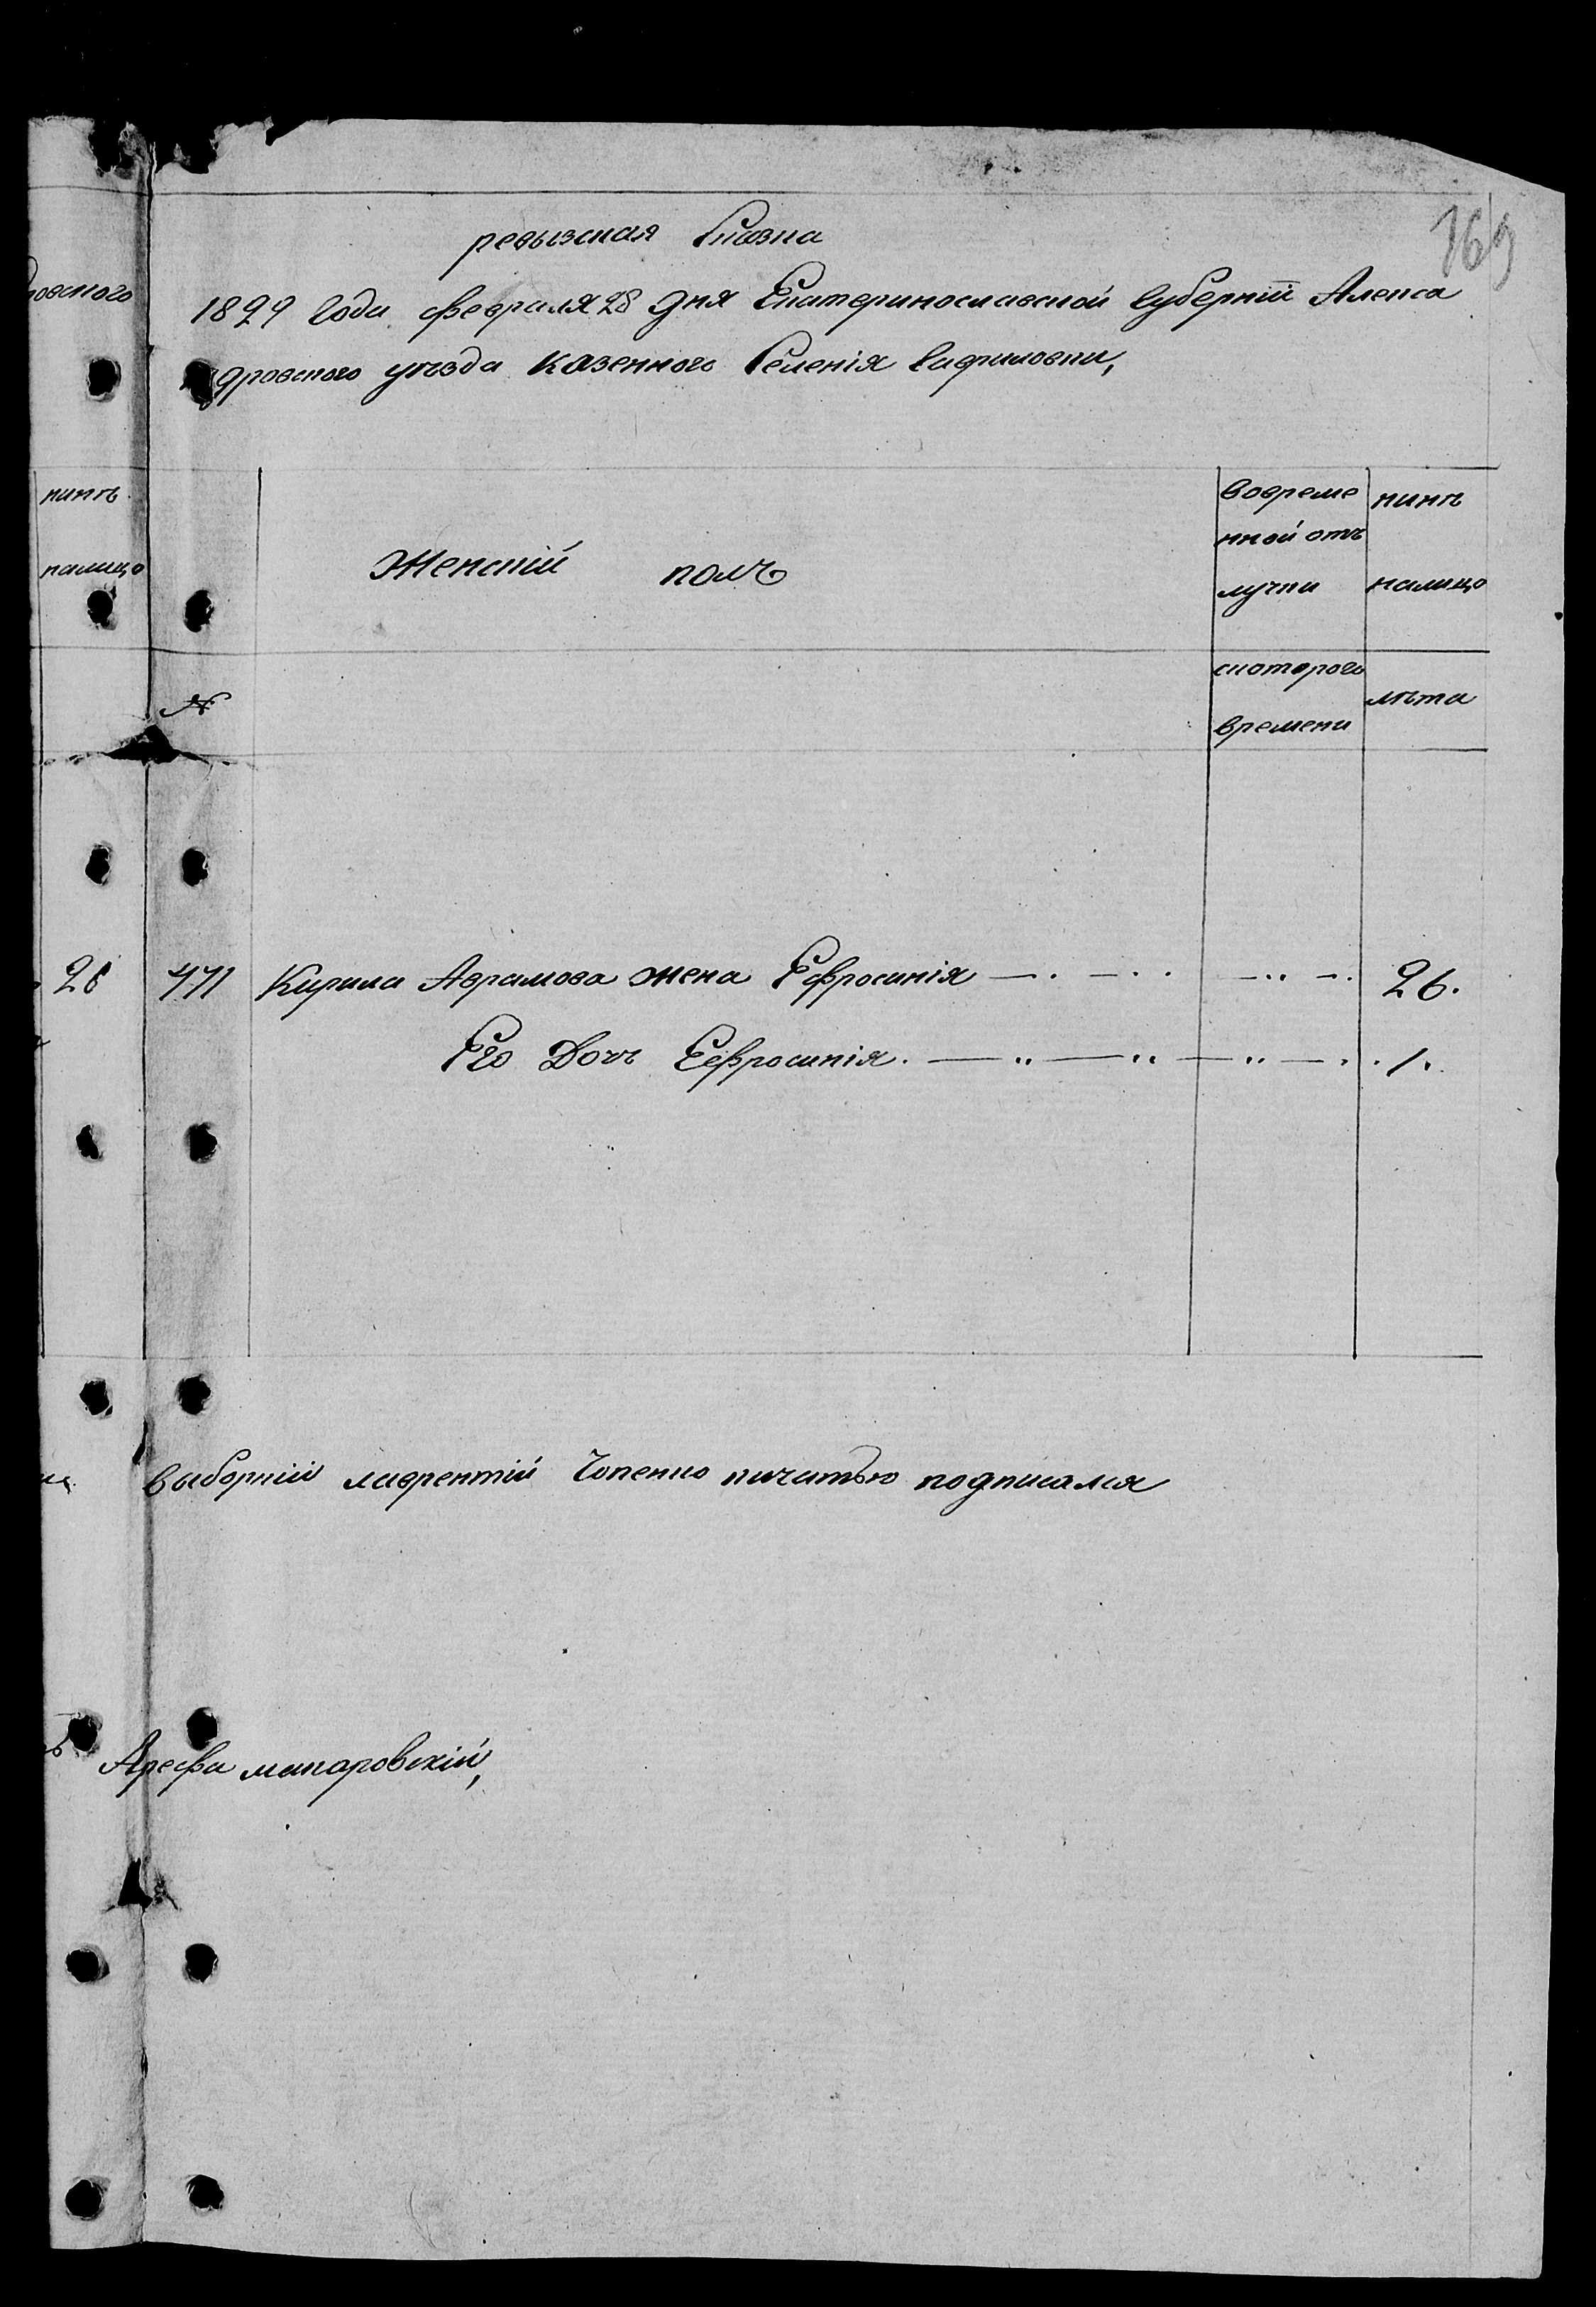 169
ревызская Сказка
1899 года февраля 28 дня Екатеринославской Губернїи Алекса
ндровского уѣзда Казенного Селенія Гавриловки,
ковского
нинѣ
налицо
Женскій полъ
вовреме
нной отъ
лучки
нинѣ
налицо
№
скоторого
времени
лѣта
28 471 Кирила Аврамова жена Ефросинія 26.
Его Дочь Ефросинія. 1.
выборній лаврентій Чопенко пичатью подписался
Арефа макаровскій,